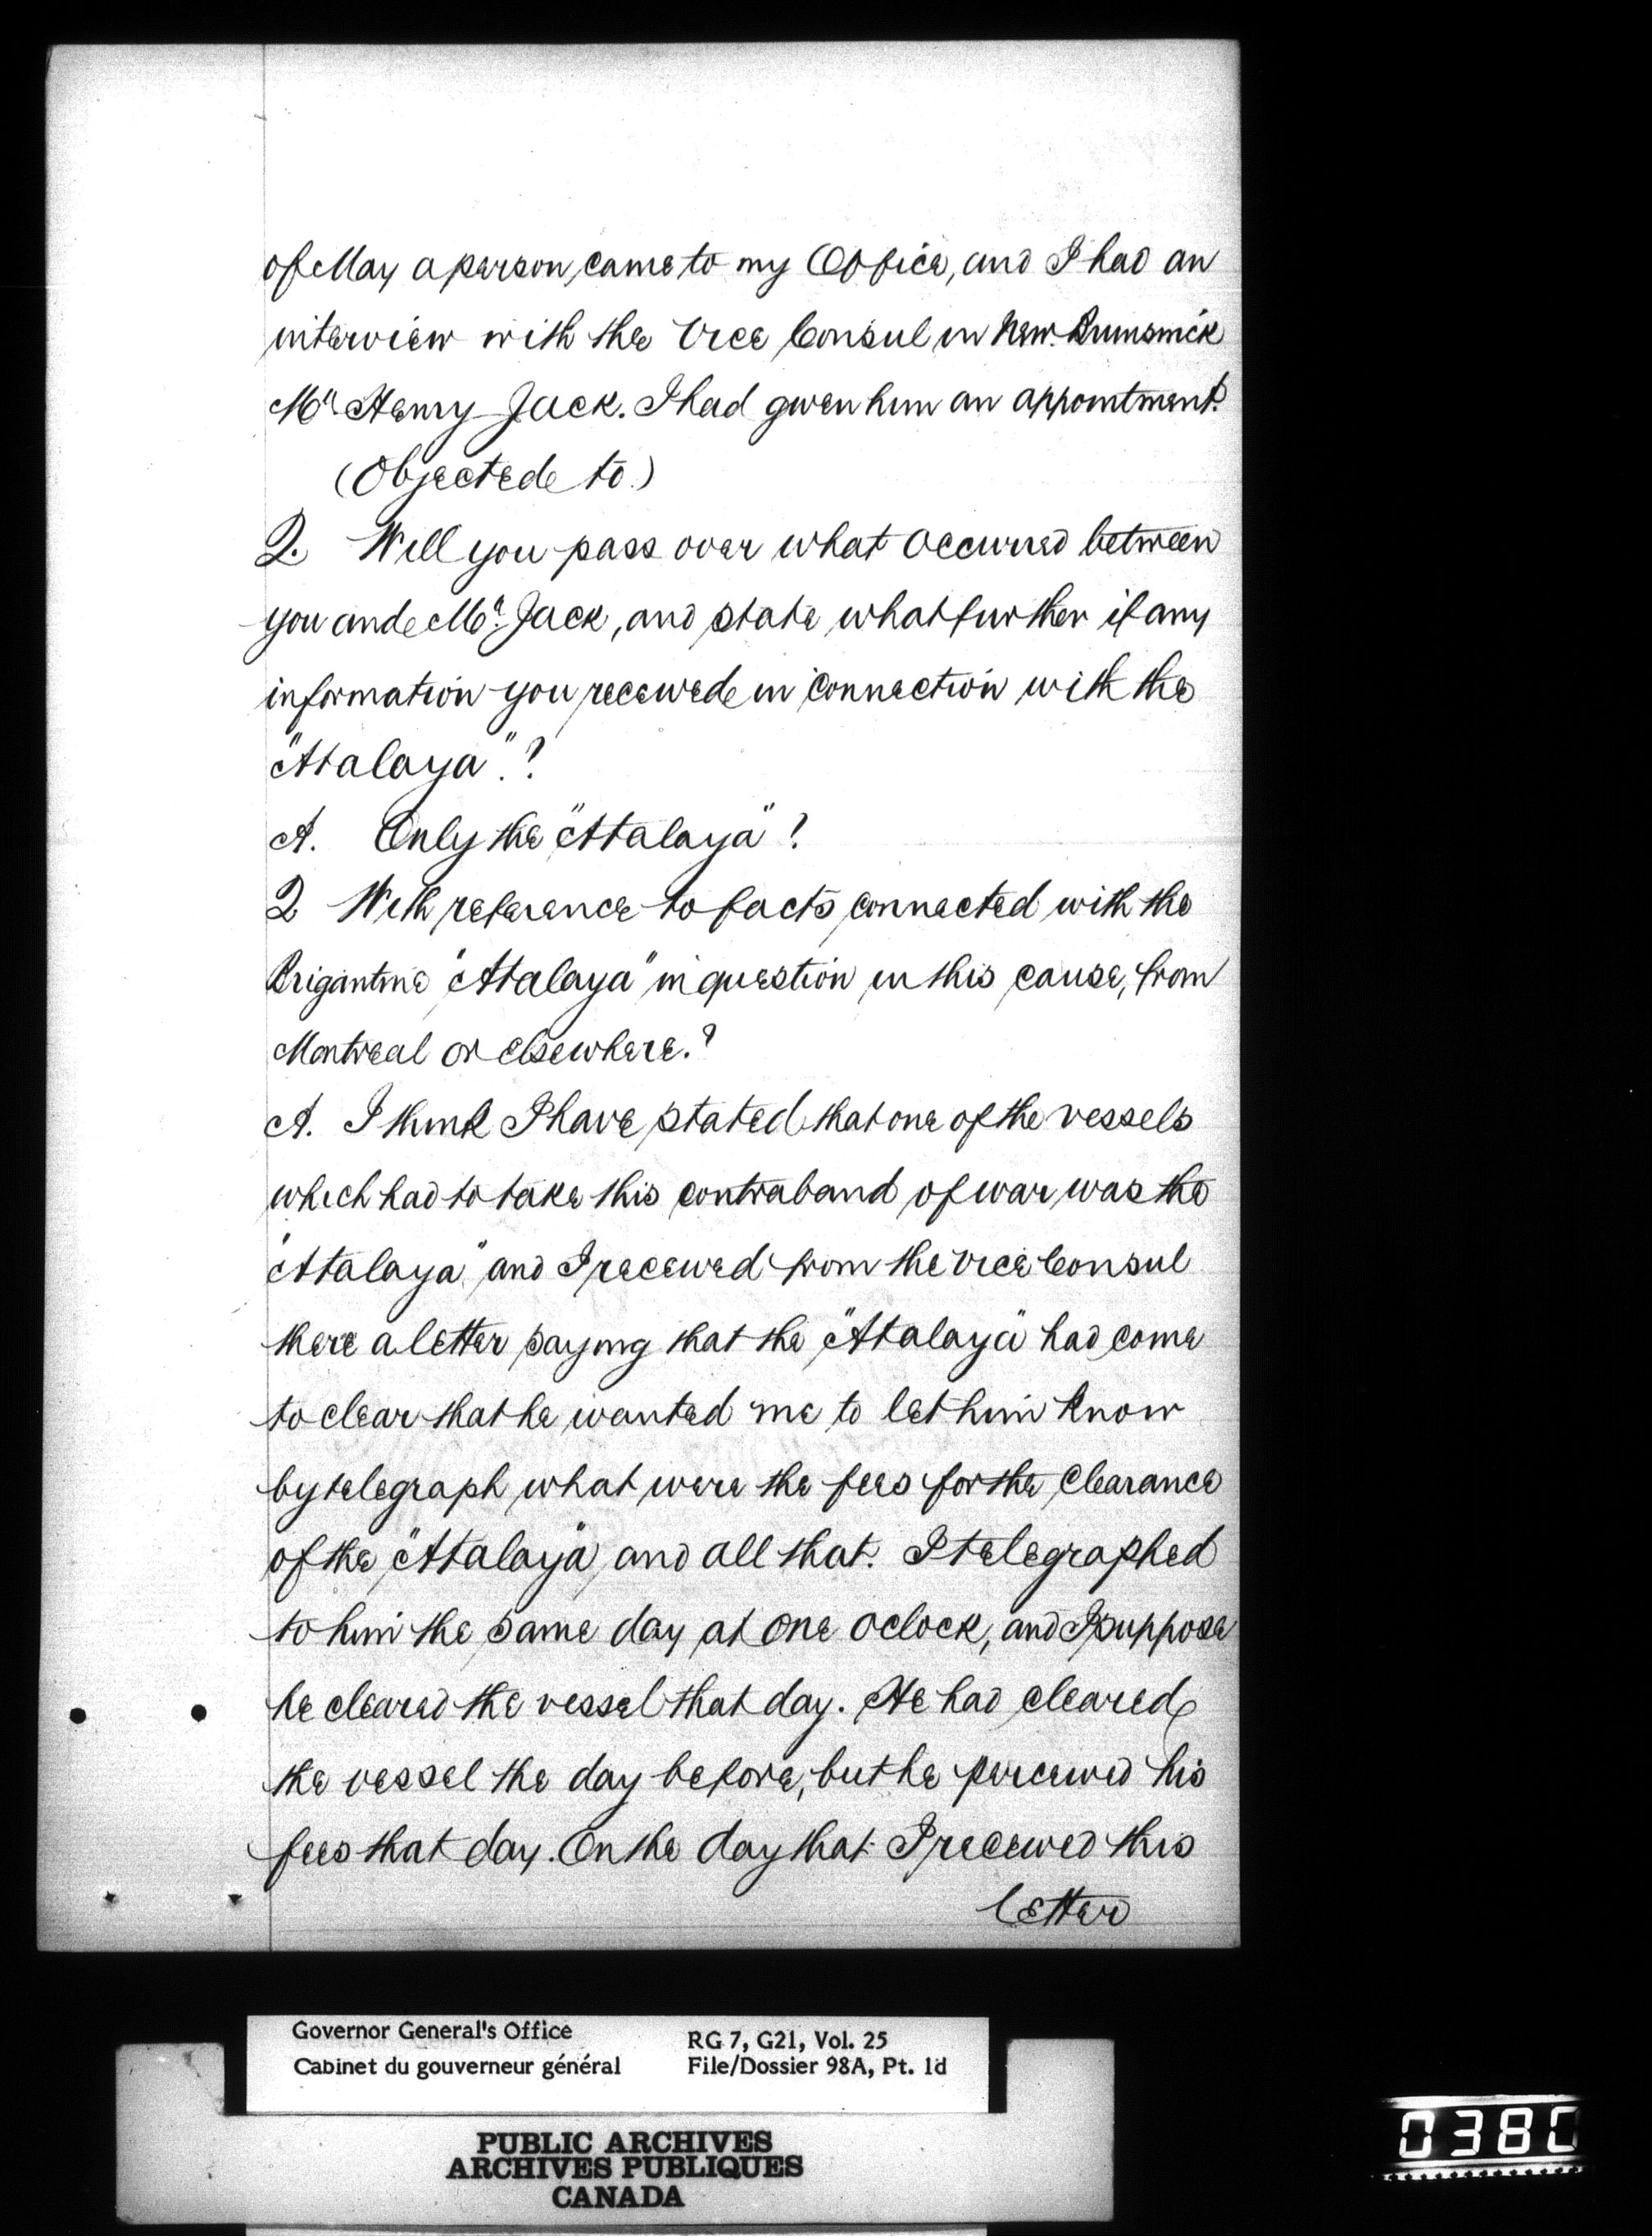 of May a person, came to my Office, and I had an
interview with the Vice Consul in New. Brunswick
Mr Henry Jack. I had given him an appointment.
(Objected to.)
Q. Will you pass over what occurred between
you and Mr. Jack, and state what further if any
information you received in connection with the
"Atalaya".?
A. Only the "Atalaya"?
Q With reference to facts connected with the
Brigantine "Atalaya" in question in this cause, from
Montreal or elsewhere.?
A. I think I have stated that one of the vessels
which had to take this contraband of war, was the
"Atalaya" and I received from the Vice Consul
there a letter saying that the "Atalaya" had come
to clear that he wanted me to let him know
by telegraph what were the fees for the Clearance
of the "Atalaya" and all that. I telegraphed
to him the same day at one oclock, and I suppose
he cleared the vessel that day. He had cleared
the vessel the day before, but he perceived his
fees that day. On the day that I received this
letter
Governor General's Office
Cabinet du gouverneur général
RG 7, G21, Vol. 25
File/Dossier 98A, Pt. 1d
PUBLIC ARCHIVES
ARCHIVES PUBLIQUES
CANADA
0380